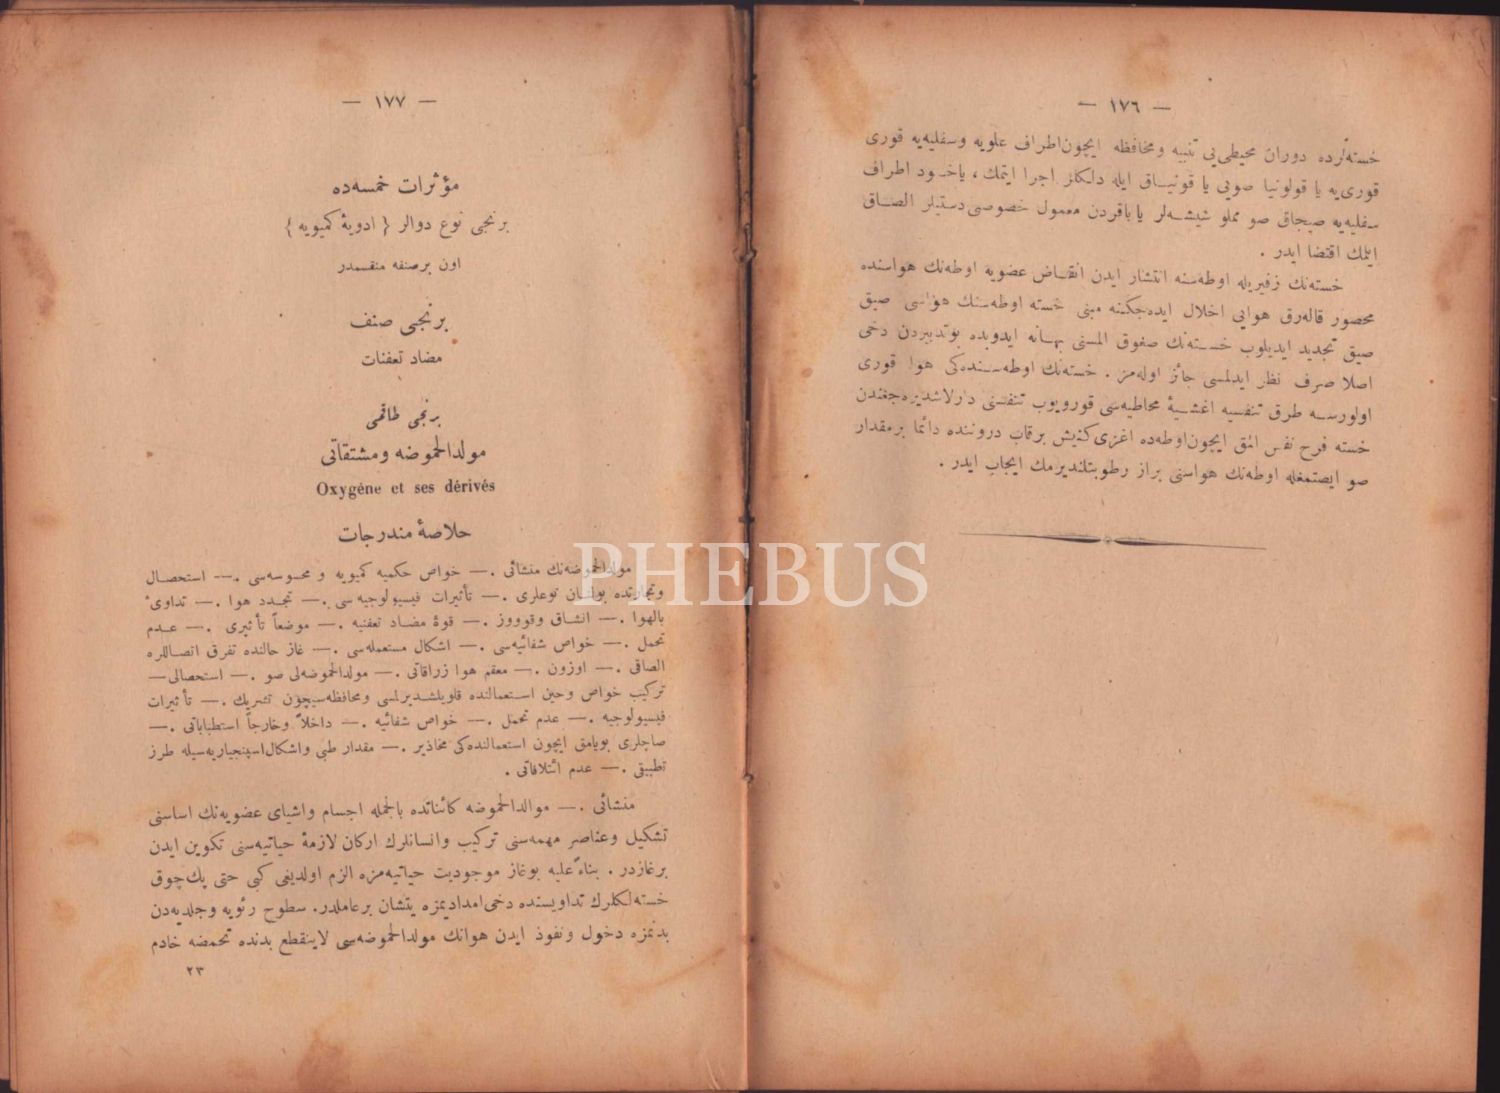 — ١٧٦ —
خسته‌لرده دوران محیطی‌یی تنبیه و محافظه ایچون اطراف علویه و سفلیه‌یه قوری
قوری‌یه یا قولونیا صویی یا قونیاق ایله دلکلر اجرا ایتمك ، یاخود اطراف
سفلیه‌یه صیجاق صو مملو شیشه‌لر یا باقردن معمول خصوصی دستیلر الصاق
ایتمك اقتضا ایدر .
خسته‌نك زفیریله اوطه‌سنه انتشار ایدن انقاض عضویه اوطه‌نك هواسنده
محصور قاله‌رق هوایی اخلال ایده‌جکنه مبنی خسته اوطه‌سنك هواسی صیق
صیق تجدید ایدیلوب خسته‌نك صغوق المسنی بهانه ایدوبده بوتدبیردن دخی
اصلا صرف نظر ایدلمسی جائز اوله‌مز . خسته‌نك اوطه‌سنده‌کی هوا قوری
اولورسه طرق تنفسیه اغشیهٔ مخاطیه‌سی قورویوب تنفسنی دارلاشدیره‌جغندن
خسته فرح نفس المق ایچون اوطه‌ده اغزی کنیش برقاب دروننده دائما برمقدار
صو ایصتمغله اوطه‌نك هواسنی براز رطوبتلندیرمك ایجاب ایدر .
— ١٧٧ —
مؤثرات خمسه‌ده
برنجی نوع دوالر { ادویهٔ کمیویه }
اون برصنفه منقسمدر
برنجی صنف
مضاد تعفنات
برنجی طاقمی
مولدالحموضه ومشتقاتی
Oxygéne et ses dérivés
خلاصهٔ مندرجات
مولدالحموضه‌نك منشائی .— خواص حکمیه کمیویه و محسوسه‌سی .— استحصال
وتجارتده بولنان نوعلری .— تأثیرات فیسیولوجیه‌سی .— تجدد هوا .— تداوئ
بالهوا .— انشاق وقوووز .— قوهٔ مضاد تعفنیه .— موضعاً تأثیری .— عدم
تحمل .— خواص شفائیه‌سی .— اشکال مستعمله‌سی .— غاز حالنده تفرق اتصاللره
الصاقی .— اوزون .— معقم هوا زراقاتی .— مولدالحموضه‌لی صو .— استحصالی—
ترکیب خواص وحین استعمالنده قلویلشدیرلمسی ومحافظه‌سیچون تشریك .— تأثیرات
فیسیولوجیه .— عدم تحمل .— خواص شفائیه .— داخلاً وخارجاً استطباباتی .—
صاچلری بویامق ایچون استعمالنده‌کی محاذیر .— مقدار طبی واشکال اسپنجیاریه‌سیله طرز
تطبیقی .— عدم ائتلافاتی .
منشائی .— موالدالحموضه کائناتده بالجمله اجسام واشیای عضویه‌نك اساسنی
تشکیل وعناصر مهمه‌سنی ترکیب وانسانلرك ارکان لازمهٔ حیاتیه‌سنی تکوین ایدن
برغازدر . بناءً علیه بوغاز موجودیت حیاتیه‌مزه الزم اولدیغی کبی حتی پك چوق
خسته‌لکلرك تداویسنده دخی امدادیمزه یتشان برعاملدر. سطوح رئویه وجلدیه‌دن
بدنمزه دخول ونفوذ ایدن هوانك مولدالحموضه‌سی لاینقطع بدنده تحمضه خادم
٢٣
PHEBUS